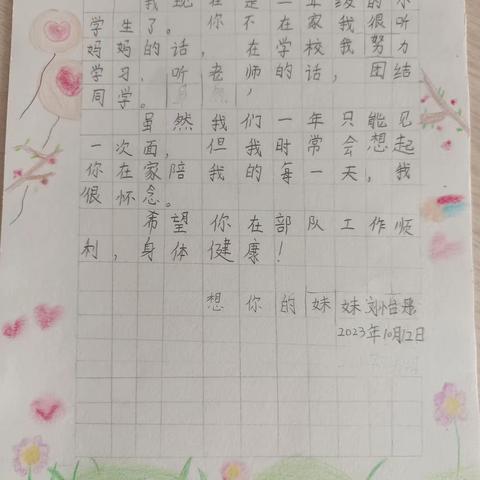 我现在是一年级的小
学生了。你不在家我很听
妈妈的话，在学校我努力
学习，听老师的话，团结
同学。
虽然我们一年只能见
一次面，但我时常会想起
你在家陪我的每一天，我
很怀念。
希望你在部队工作顺
利，身体健康！
想你的妹妹刘怡彤
2023年10月12日